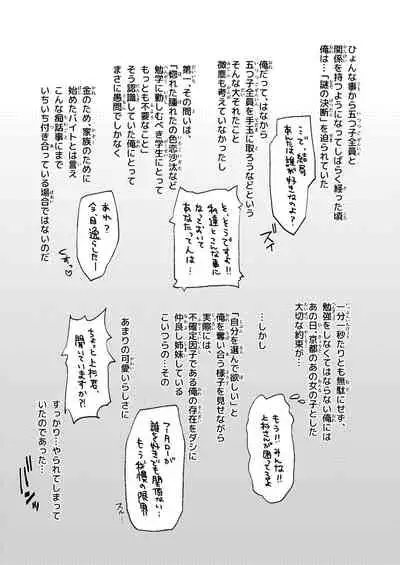 ひょんな事から五つ子全員と
関係を持つようになってしばらく経った頃
俺は…「謎の決断」を迫られていた
…で、結局
あんたは誰が好きなのよ?
俺だって、はなから
五つ子全員を手玉に取ろうなどという
そんな大それたこと
微塵も考えていなかったし
そ、そうですよ!!
私達とこんな事に
なっておいて
あなたって人は…
第一、その問いは、
「惚れた腫れたの色恋沙汰など
勉学に勤しむべき学生にとって
もっとも不要なこと」
そう認識していた俺にとって
まさに愚問でしかなく
あれ?
今、目逸らした…
金のため、家族のために
始めたバイトとは言え
こんな痴話事にまで
いちいち付き合っている場合
ではないのだ
一分一秒たりとも無駄にせず、
勉強をしなくてはならない俺には
あの日、京都のあの女の子とした
大切な約束が…
もう!!みんな!!
上杉さんが困ってるよ
…しかし
「自分を選んで欲しい」と
俺を奪い合う様子を見せながら
実際には、
不確定因子である俺の存在をダシに
仲良し姉妹している
こいつらの…その
フータローが
誰を好きでも関係ない…
もう我慢の限界
あまりの可愛いらしさに
ちょっと上杉君、
聞いていますか?!
すっかり…やられてしまって
いたのであった…